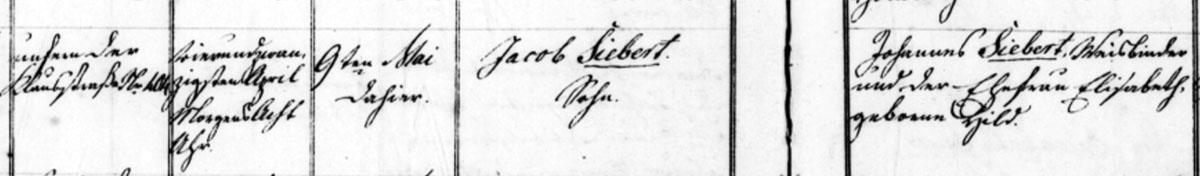 unfern der
Klausstraße No
vierundzwan-
zigsten April
Morgens Acht
Uhr.
9ten Mai
dahier.
Jacob Siebert.
Sohn.
Johannes Siebert, Weisbinder
und der Ehefrau Elisabeth,
geborne Hild.